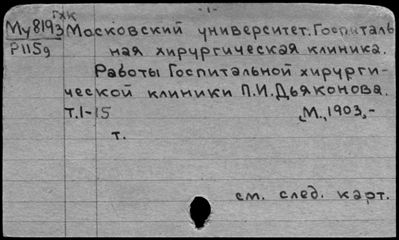 -1-
ГХК
Му8193 Московский университет. Госпиталь
Р115g ная хирургическая клиника.
Работы Госпитальной хирурги-
ческой клиники П.И.Дьяконова.
Т.1-15 М., 1903,-
т.
см. след. карт.